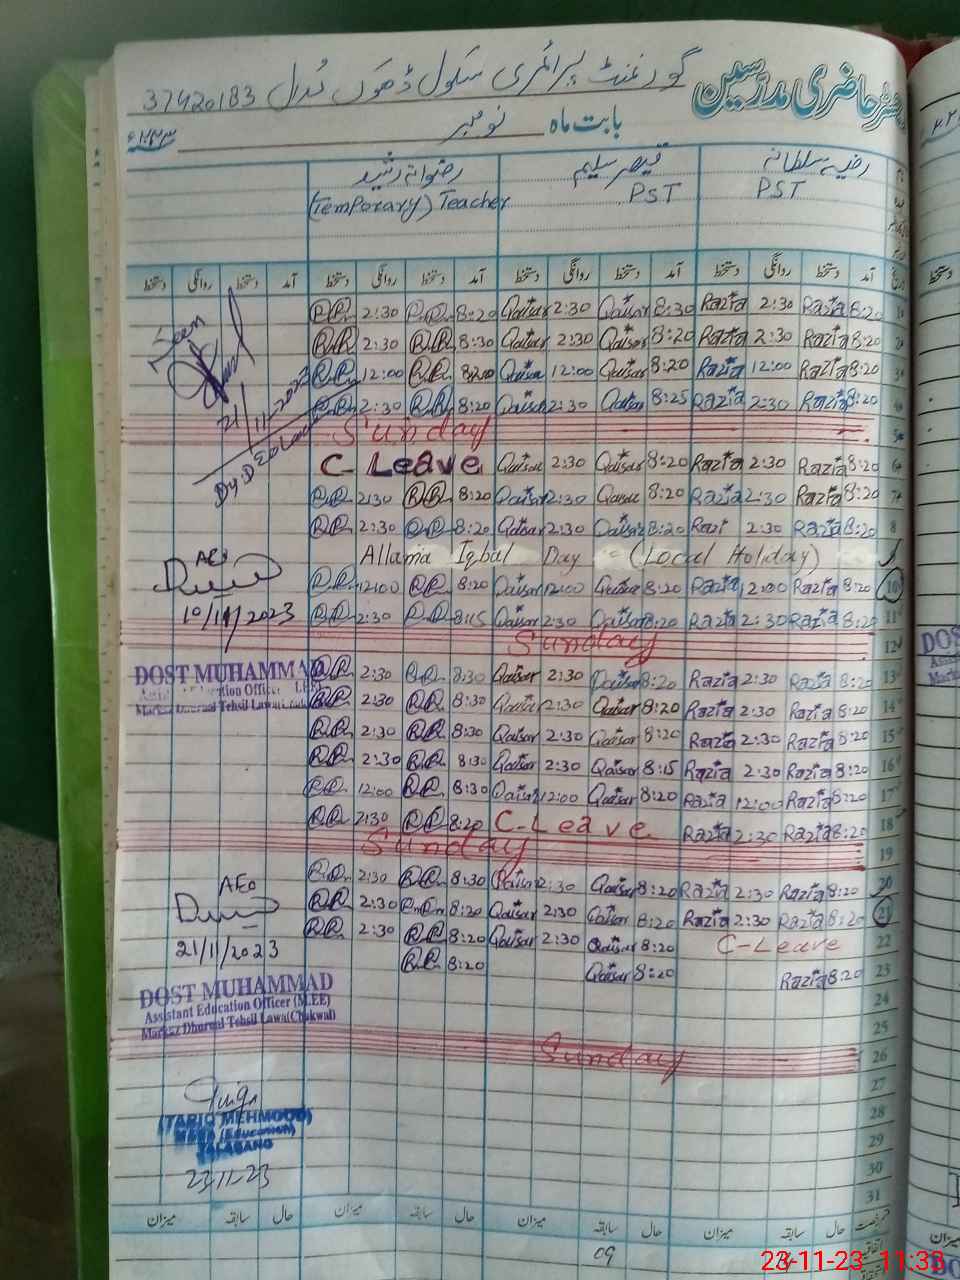 گورنمنٹ پرائمری سکول ڈھوک 37420183
رجسٹر حاضری مدرسین
بابت ماہ نومبر
رضیہ سلطانہ قیصر سلیم رضوانہ رشید
PST PST (Temporary) Teacher
آمد دستخط روانگی دستخط آمد دستخط روانگی دستخط آمد دستخط روانگی دستخط آمد دستخط روانگی دستخط
R.R. 2:30 R.R. 8:20 Qaisar 2:30 Qaisar 8:30 Razia 2:30 Razia 8:20
R.R. 2:30 R.R. 8:30 Qaisar 2:30 Qaisar 8:20 Razia 2:30 Razia 8:20
R.R. 12:00 R.R. 8:20 Qaisar 12:00 Qaisar 8:20 Razia 12:00 Razia 8:20
R.R. 2:30 R.R. 8:20 Qaisar 2:30 Qaisar 8:25 Razia 2:30 Razia 8:20
Seen
21/11-2023
Sunday
C-Leave Qaisar 2:30 Qaisar 8:20 Razia 2:30 Razia 8:20 6
R.R. 2:30 R.R. 8:20 Qaisar 2:30 Qaisar 8:20 Razia 2:30 Razia 8:20 7
R.R. 2:30 R.R. 8:20 Qaisar 2:30 Qaisar 8:20 Razi 2:30 Razia 8:20 8
Allama Iqbal Day (Local Holiday)
AEo
R.R. 12:00 R.R. 8:20 Qaisar 12:00 Qaisar 8:20 Razia 12:00 Razia 8:20 10
10/11/2023
R.R. 2:30 R.R. 8:15 Qaisar 2:30 Qaisar 8:20 Razia 2:30 Razia 8:20 11
Sunday 12
DOST MUHAMMAD
R.R. 2:30 R.R. 8:30 Qaisar 2:30 Qaisar 8:20 Razia 2:30 Razia 8:20 13
Markaz Dhurnal Tehsil Lawa
R.R. 2:30 R.R. 8:30 Qaisar 2:30 Qaisar 8:20 Razia 2:30 Razia 8:20 14
R.R. 2:30 R.R. 8:30 Qaisar 2:30 Qaisar 8:20 Razia 2:30 Razia 8:20 15
R.R. 2:30 R.R. 8:30 Qaisar 2:30 Qaisar 8:15 Razia 2:30 Razia 8:20 16
R.R. 12:00 R.R. 8:30 Qaisar 12:00 Qaisar 8:20 Razia 12:00 Razia 8:20 17
R.R. 2:30 R.R. 8:20 C-Leave Razia 2:30 Razia 8:20 18
Sunday 19
R.R. 2:30 R.R. 8:30 Qaisar 2:30 Qaisar 8:20 Razia 2:30 Razia 8:20 20
AEo
R.R. 2:30 R.R. 8:20 Qaisar 2:30 Qaisar 8:20 Razia 2:30 Razia 8:20 21
R.R. 2:30 R.R. 8:20 Qaisar 2:30 Qaisar 8:20 C-Leave 22
21/11/2023
R.R. 8:20 Qaisar 8:20 Razia 8:20 23
DOST MUHAMMAD
Assistant Education Officer (M.EE)
Markaz Dhurnal Tehsil Lawa(Chakwal)
24
25
Sunday 26
27
(TARIQ MEHMOOD)
MEEA (Education)
TALAGANG
28
29
23-11-23
30
31
حال سابقہ میزان حال سابقہ میزان حال سابقہ میزان حال سابقہ میزان
09
23-11-23 11:33